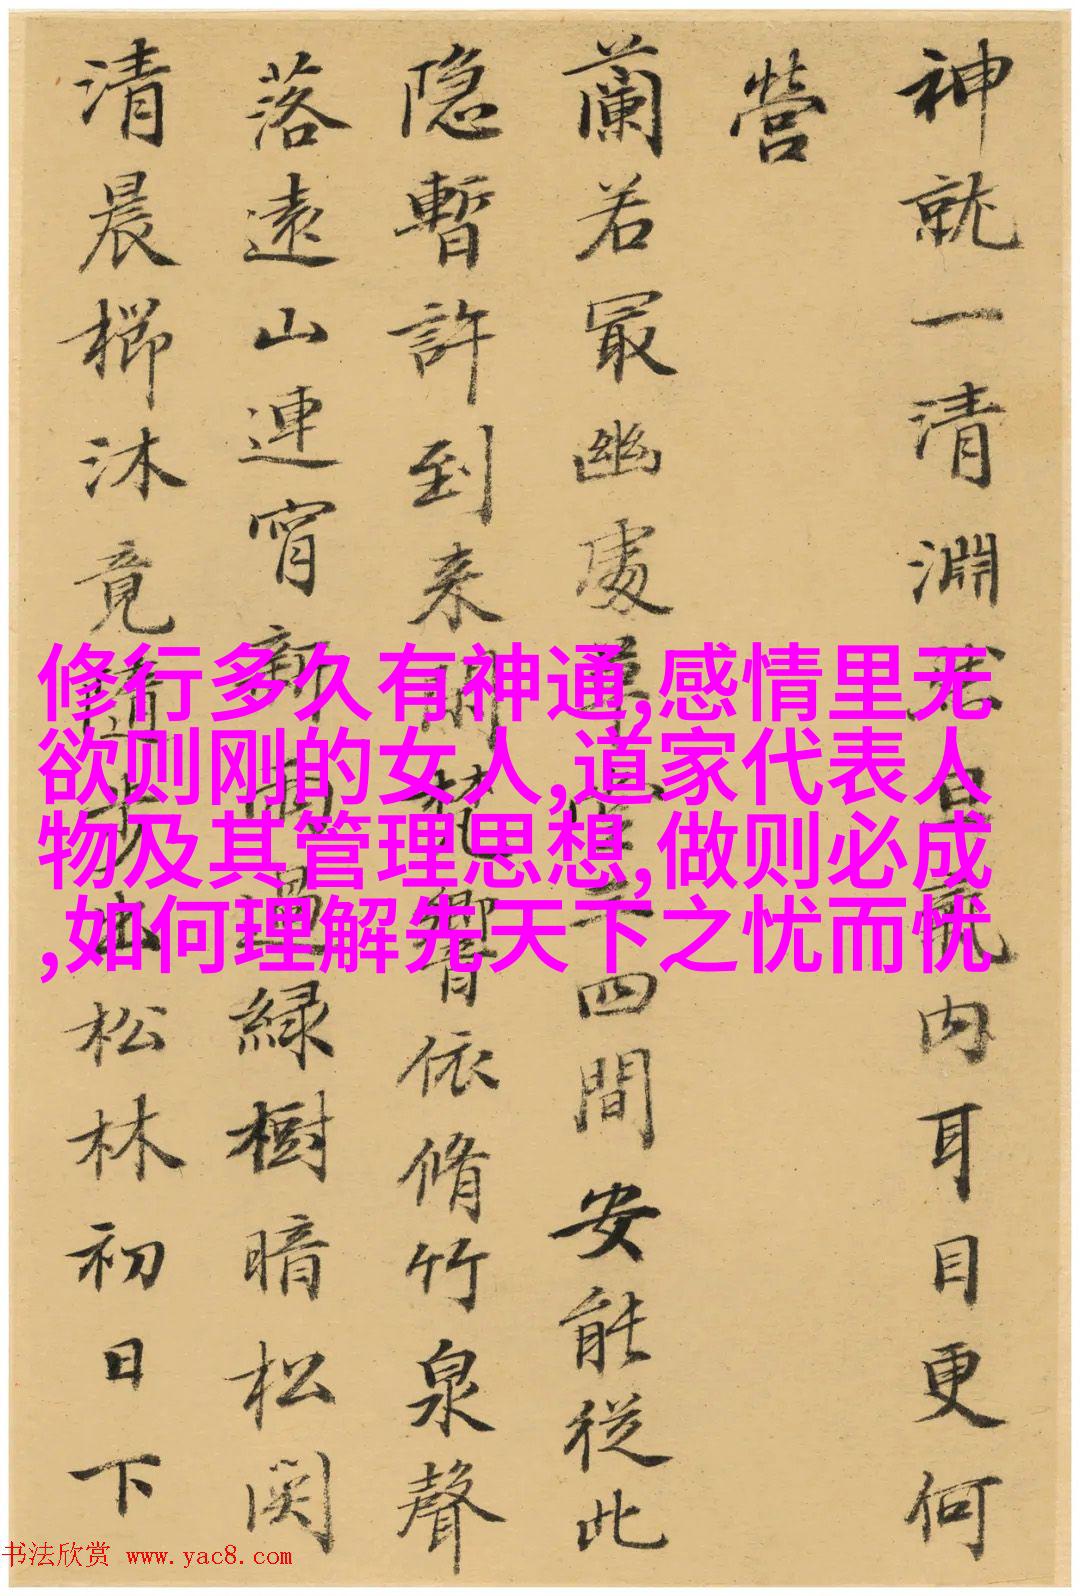 神就一清淵内耳目更何
營
蘭若冣幽處四間安能從此
隐暫許到来閒梵響依脩竹泉聲
落遠山連宵新雨過緑樹暗松関
清晨櫛沐竟步出松林初日下
修行多久有神通,感情里无
欲则刚的女人,道家代表人
物及其管理思想,做则必成
,如何理解先天下之忧而忧
书法欣赏 www.yac8.com